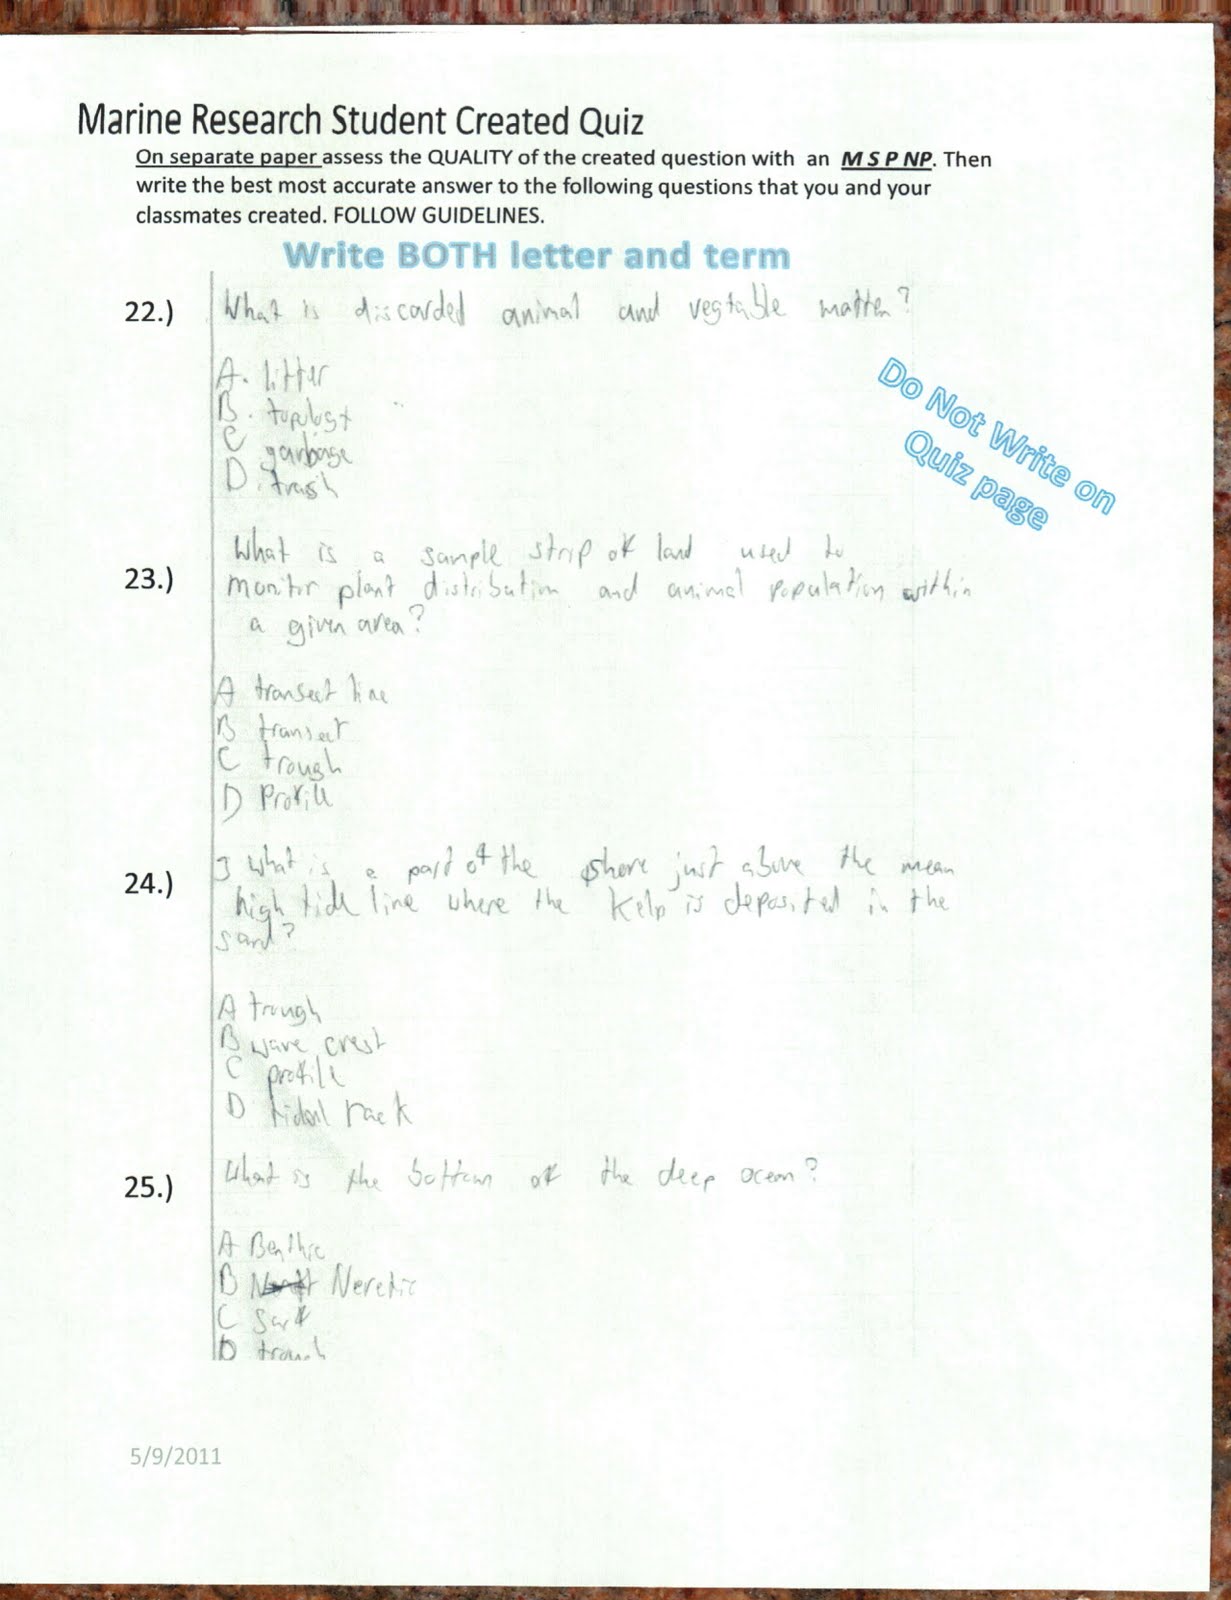 Marine Research Student Created Quiz
On separate paper assess the QUALITY of the created question with an M S P NP. Then
write the best most accurate answer to the following questions that you and your
classmates created. FOLLOW GUIDELINES.
Write BOTH letter and term
22.) What is discarded animal and vegtable matter?
Do Not Write on
Quiz page
A. litter
B.
C garbage
D. trash
23.) What is a sample strip of land used to
monitor plant distribution and animal population within
a given area?
A transect line
B transect
C trough
D Profile
24.) What is a part of the shore just above the mean
high tide line where the kelp is deposited in the
sand?
A trough
B wave crest
C profile
D tidal rack
25.) What is the bottom of the deep ocean?
A Benthic
B Neretic
C Surf
D trough
5/9/2011